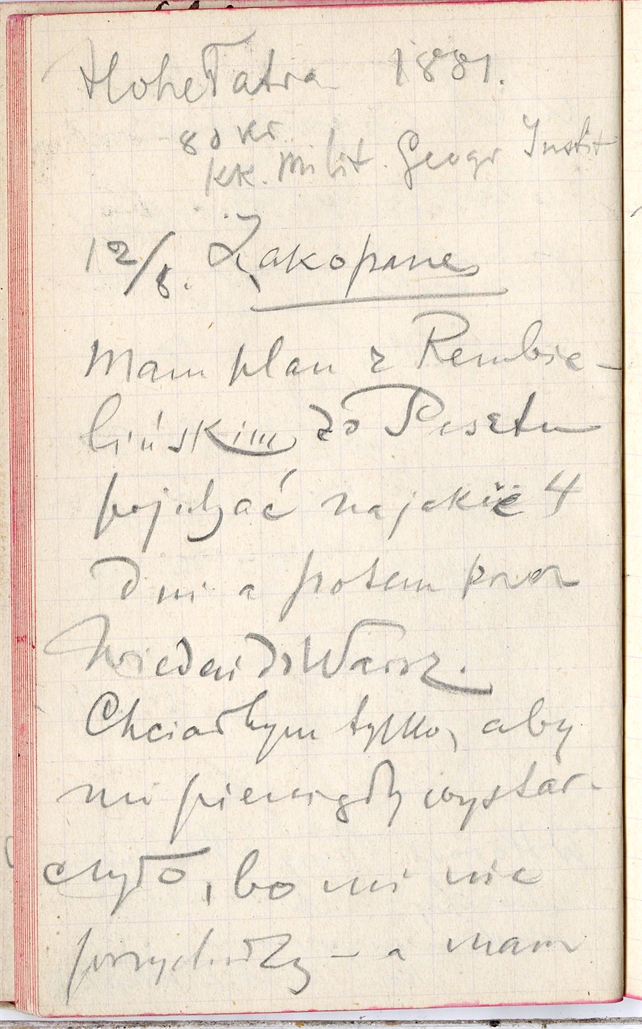 Hohe Tatra 1881.
80 kr.
kk. Milit. Geogr Instit
12/8. Zakopane
Mam plan z Rembie-
lińskim do Pesztu
pojechać na jakie 4
dni a potem przez
Wiedeń do Warsz.
Chciałbym tylko, aby
mi pieniędzy wystar-
czyło, bo mi nie
przychodzą – a mam